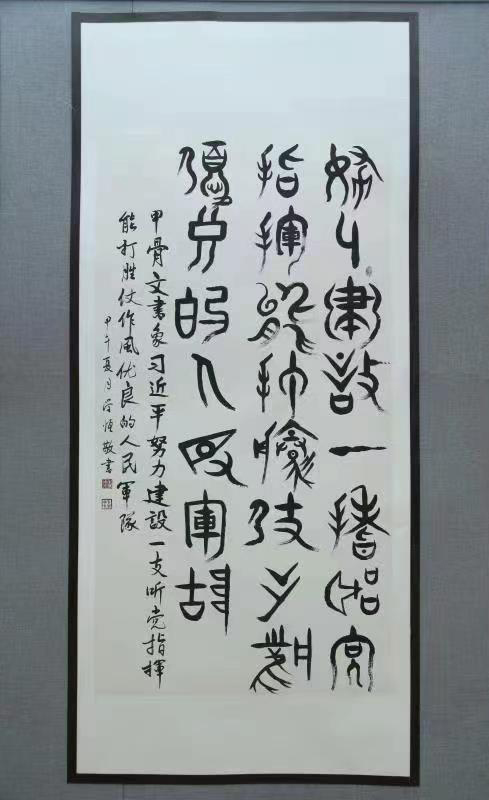 努力建設一支听党
指揮能打勝仗作風
優良的人民軍隊
甲骨文書象习近平努力建設一支听党指揮
能打胜仗作風优良的人民軍隊
甲午夏月敬書